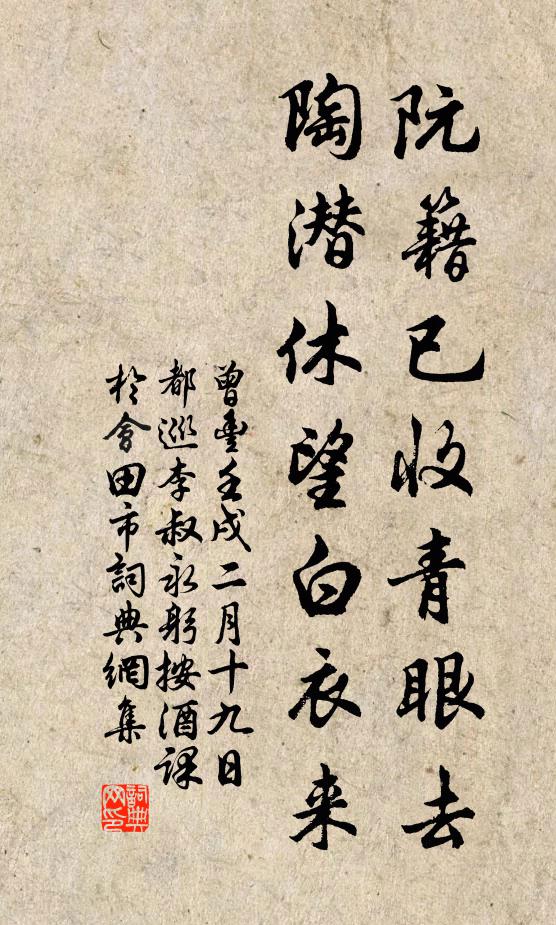 阮籍已收青眼去
陶潜休望白衣来
曾豊壬戌二月十九日
都巡李叔永躬按酒课
於會田市詞典網集
詞典网印